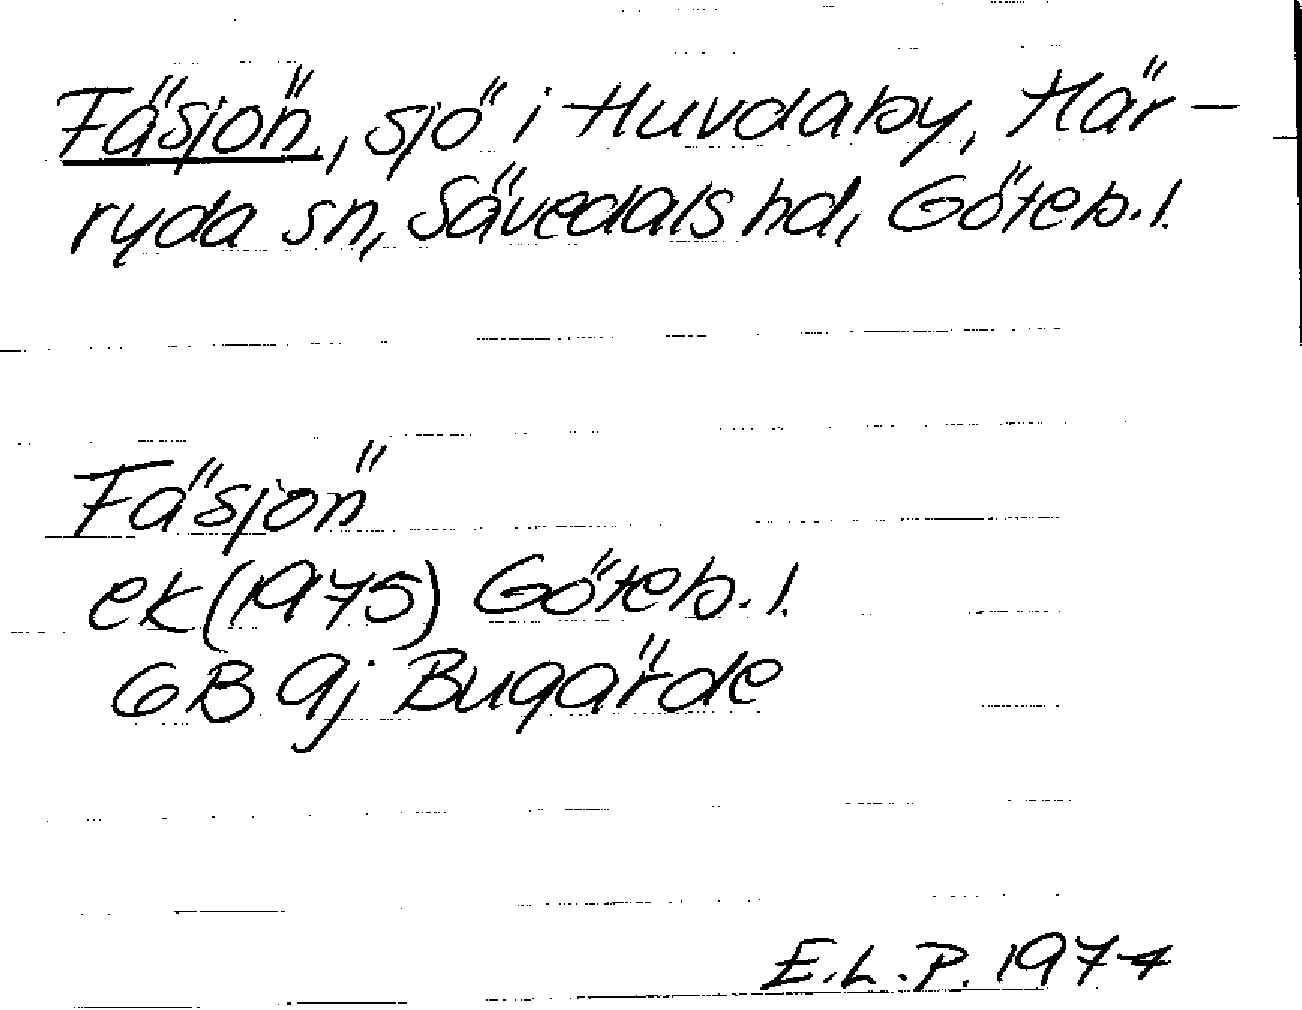 Fäsjön, sjö i Huvdaby, Här-
ryda sn, Sävedals hd, Göteb. l.
Fäsjön
ek (1975) Göteb. l.
6B 9j Bugärde
E.L.P. 1974